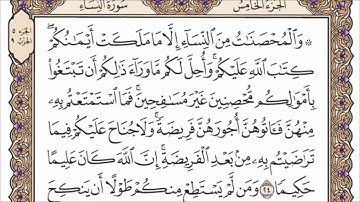 الجزء الخامس سورة النساء
۞ وَالْمُحْصَنَاتُ مِنَ النِّسَاءِ إِلَّا مَا مَلَكَتْ أَيْمَانُكُمْ
كِتَابَ اللَّهِ عَلَيْكُمْ وَأُحِلَّ لَكُم مَّا وَرَاءَ ذَٰلِكُمْ أَن تَبْتَغُوا
بِأَمْوَالِكُم مُّحْصِنِينَ غَيْرَ مُسَافِحِينَ فَمَا اسْتَمْتَعْتُم بِهِ
مِنْهُنَّ فَآتُوهُنَّ أُجُورَهُنَّ فَرِيضَةً وَلَا جُنَاحَ عَلَيْكُمْ فِيمَا
تَرَاضَيْتُم بِهِ مِن بَعْدِ الْفَرِيضَةِ إِنَّ اللَّهَ كَانَ عَلِيمًا
حَكِيمًا ٢٤ وَمَن لَّمْ يَسْتَطِعْ مِنكُمْ طَوْلًا أَن يَنكِحَ
الجزء ٥
الحزب ٩